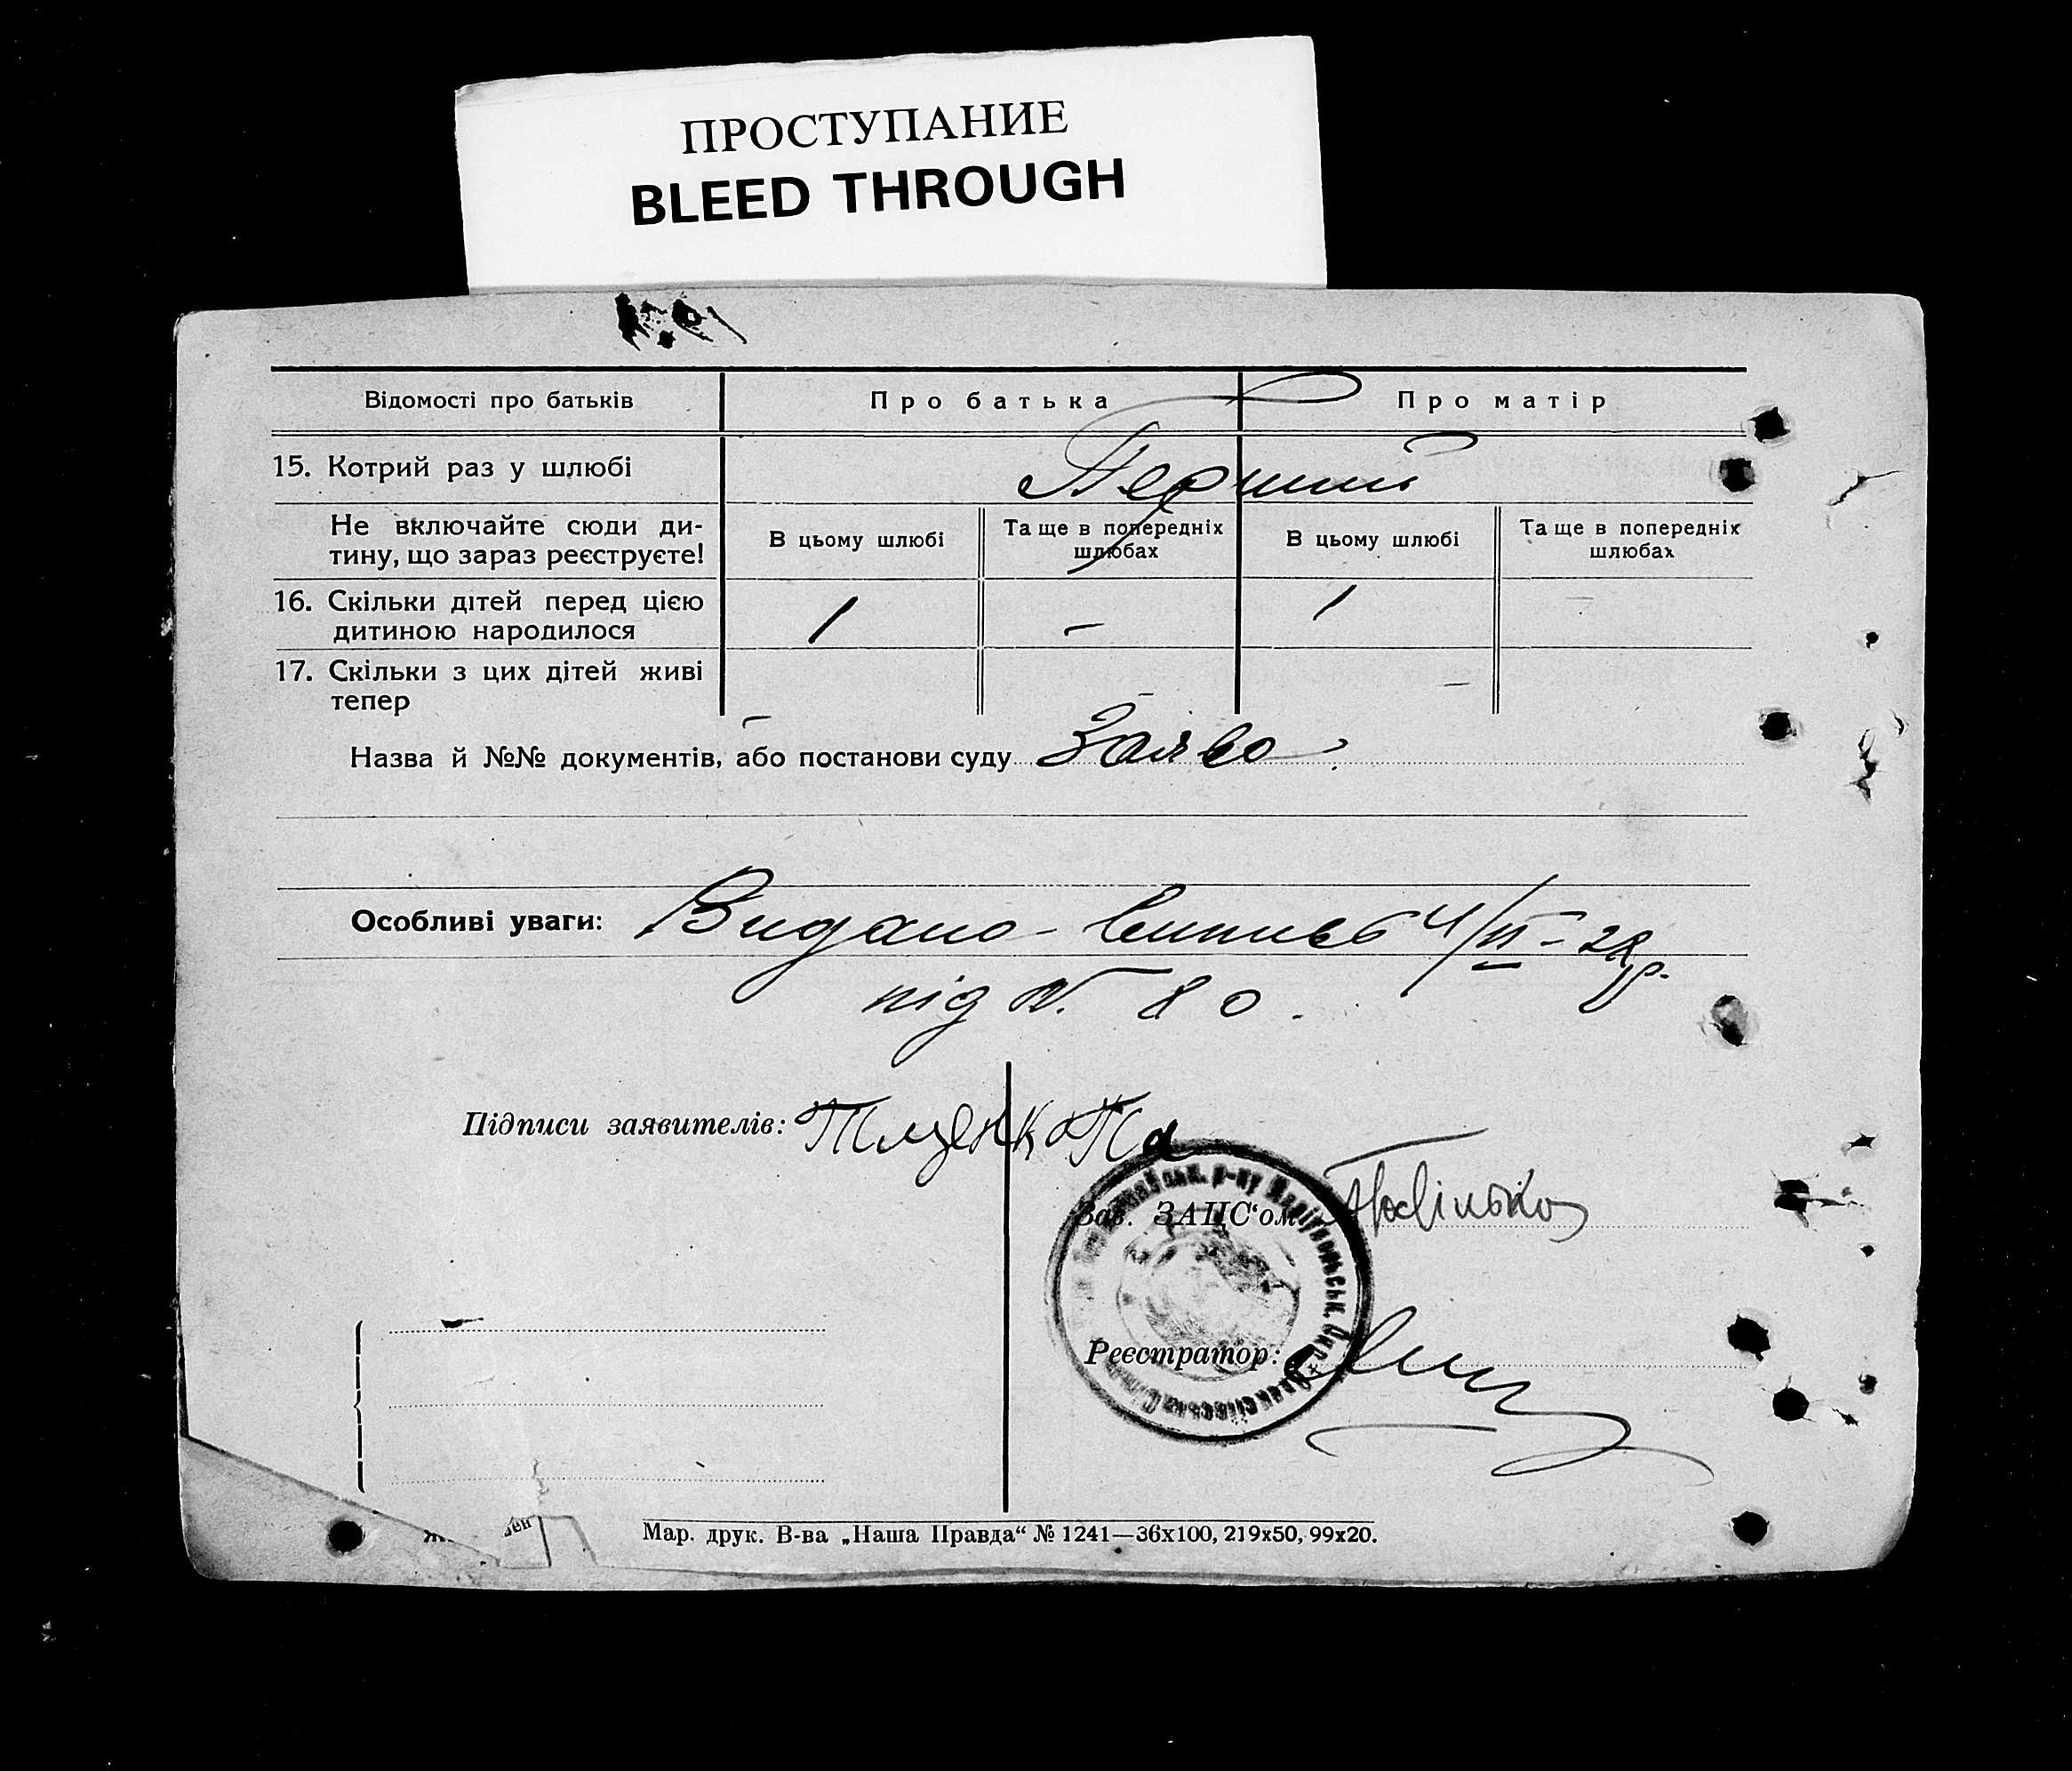 ПРОСТУПАНИЕ
BLEED THROUGH
Відомості про батьків
Про батька
Про матір
15. Котрий раз у шлюбі
Перший
Не включайте сюди ди-
тину, що зараз реєструєте!
В цьому шлюбі
Та ще в попередніх
шлюбах
В цьому шлюбі
Та ще в попередніх
шлюбах
16. Скільки дітей перед цією
дитиною народилося
1
–
1
–
17. Скільки з цих дітей живі
тепер
–
–
–
Назва й №№ документів, або постанови суду Заява
Особливі уваги: Видано випись 4/VI–28р.
під N. 80.
Підписи заявителів:
Зав. ЗАЦС'ом
р-ну Маріупольськ. Окр.
Реєстратор:
Мар. друк. В-ва „Наша Правда“ № 1241—36х100, 219х50, 99х20.